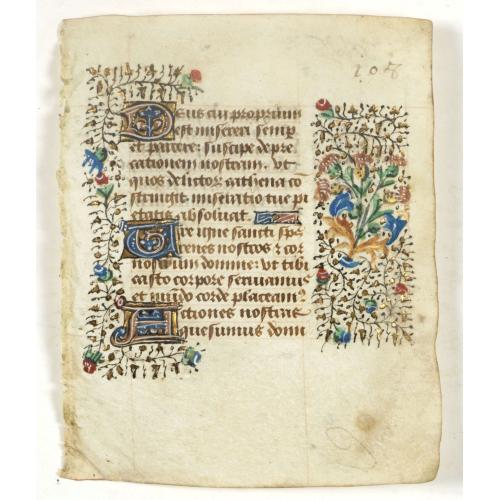 108
Deus cui proprium
est misereri semp
et parcere: suscipe depre
cationem nostram. Vt
quos delictor cathena co
stringit miseratio tue pi
etatis absoluat.
Vre igne sancti sps
renes nostros & cor
nostrum domine: vt tibi
casto corpore seruamus
et mundo corde placeam9
Actiones nostras
quesumus domi